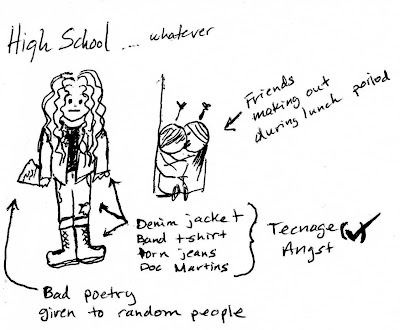 High School .... whatever
Friends
making out
during lunch period
Denim jacket
Band t-shirt
torn jeans
Doc Martins
Teenage
Angst
Bad poetry
given to random people